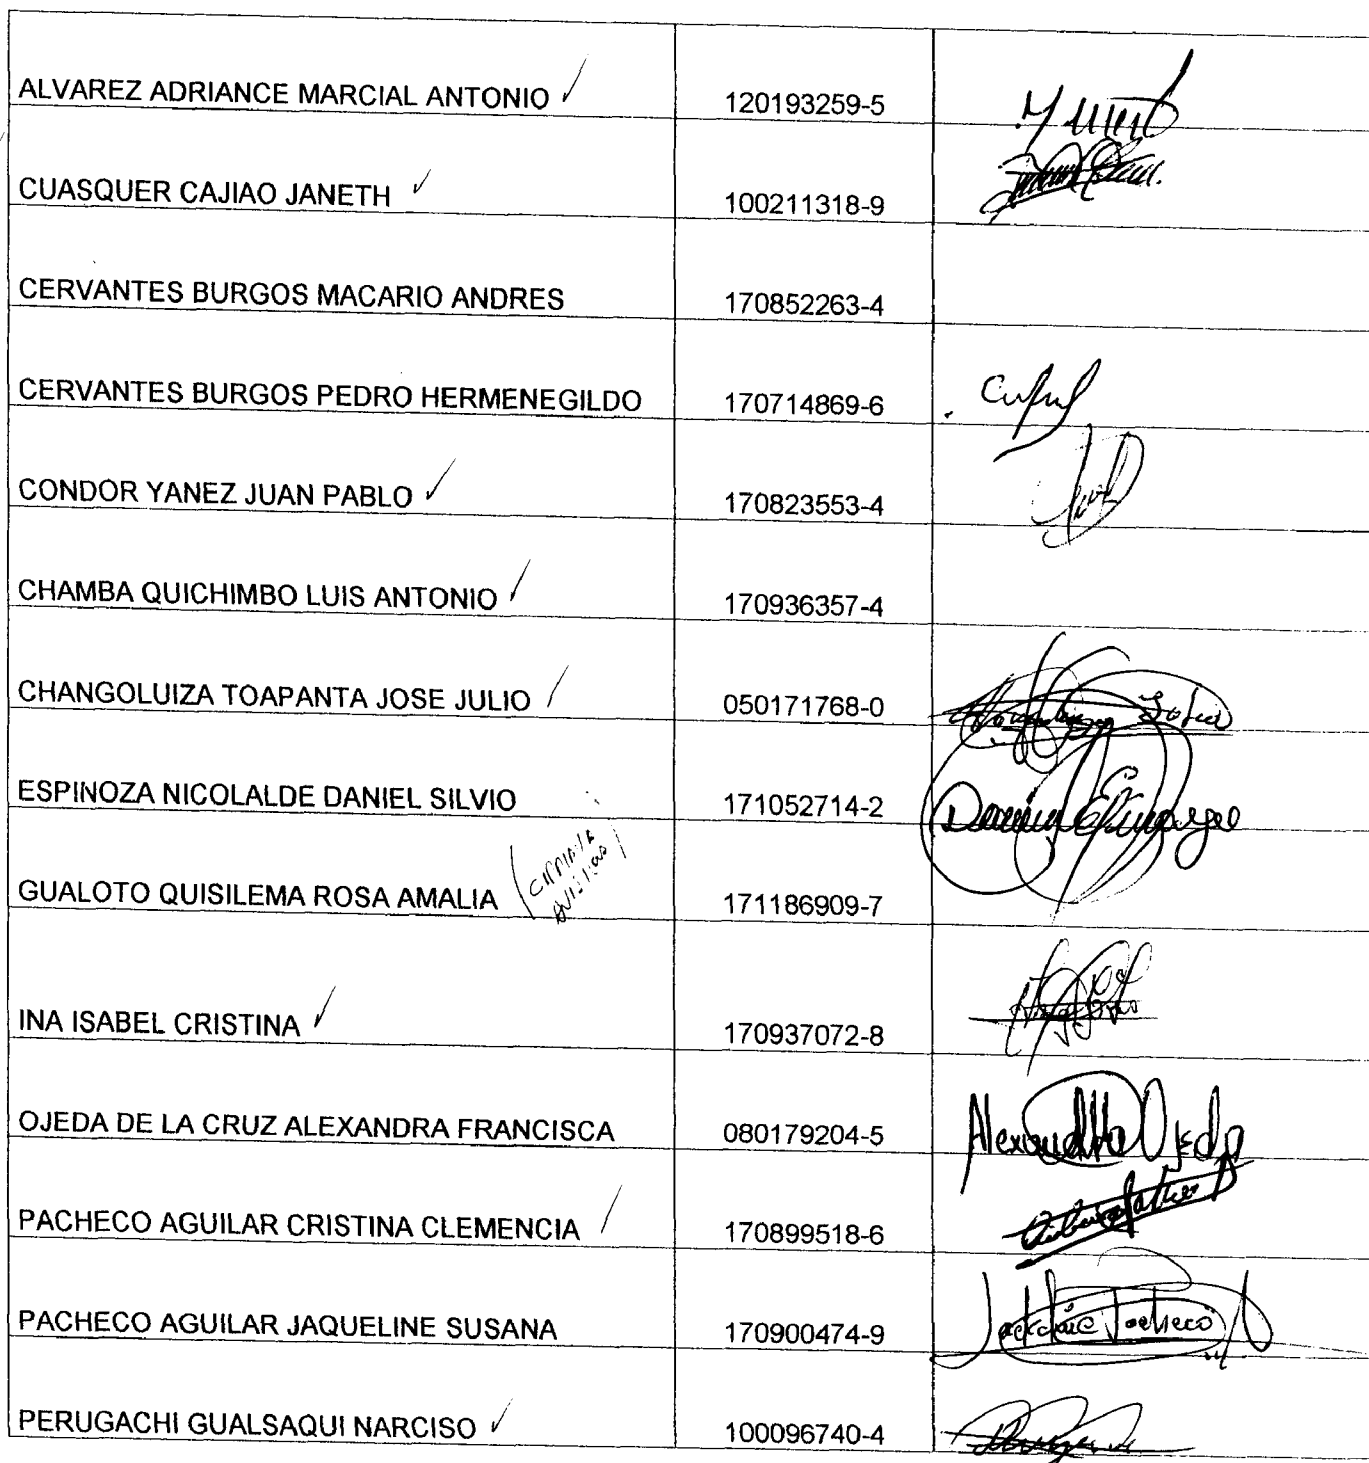 ALVAREZ ADRIANCE MARCIAL ANTONIO ✓ 120193259-5
CUASQUER CAJIAO JANETH ✓ 100211318-9
CERVANTES BURGOS MACARIO ANDRES 170852263-4
CERVANTES BURGOS PEDRO HERMENEGILDO 170714869-6
CONDOR YANEZ JUAN PABLO ✓ 170823553-4
CHAMBA QUICHIMBO LUIS ANTONIO ✓ 170936357-4
CHANGOLUIZA TOAPANTA JOSE JULIO 050171768-0
ESPINOZA NICOLALDE DANIEL SILVIO 171052714-2
GUALOTO QUISILEMA ROSA AMALIA 171186909-7
INA ISABEL CRISTINA ✓ 170937072-8
OJEDA DE LA CRUZ ALEXANDRA FRANCISCA 080179204-5 Alexandra Ojeda
PACHECO AGUILAR CRISTINA CLEMENCIA 170899518-6
PACHECO AGUILAR JAQUELINE SUSANA 170900474-9 Pacheco
PERUGACHI GUALSAQUI NARCISO ✓ 100096740-4